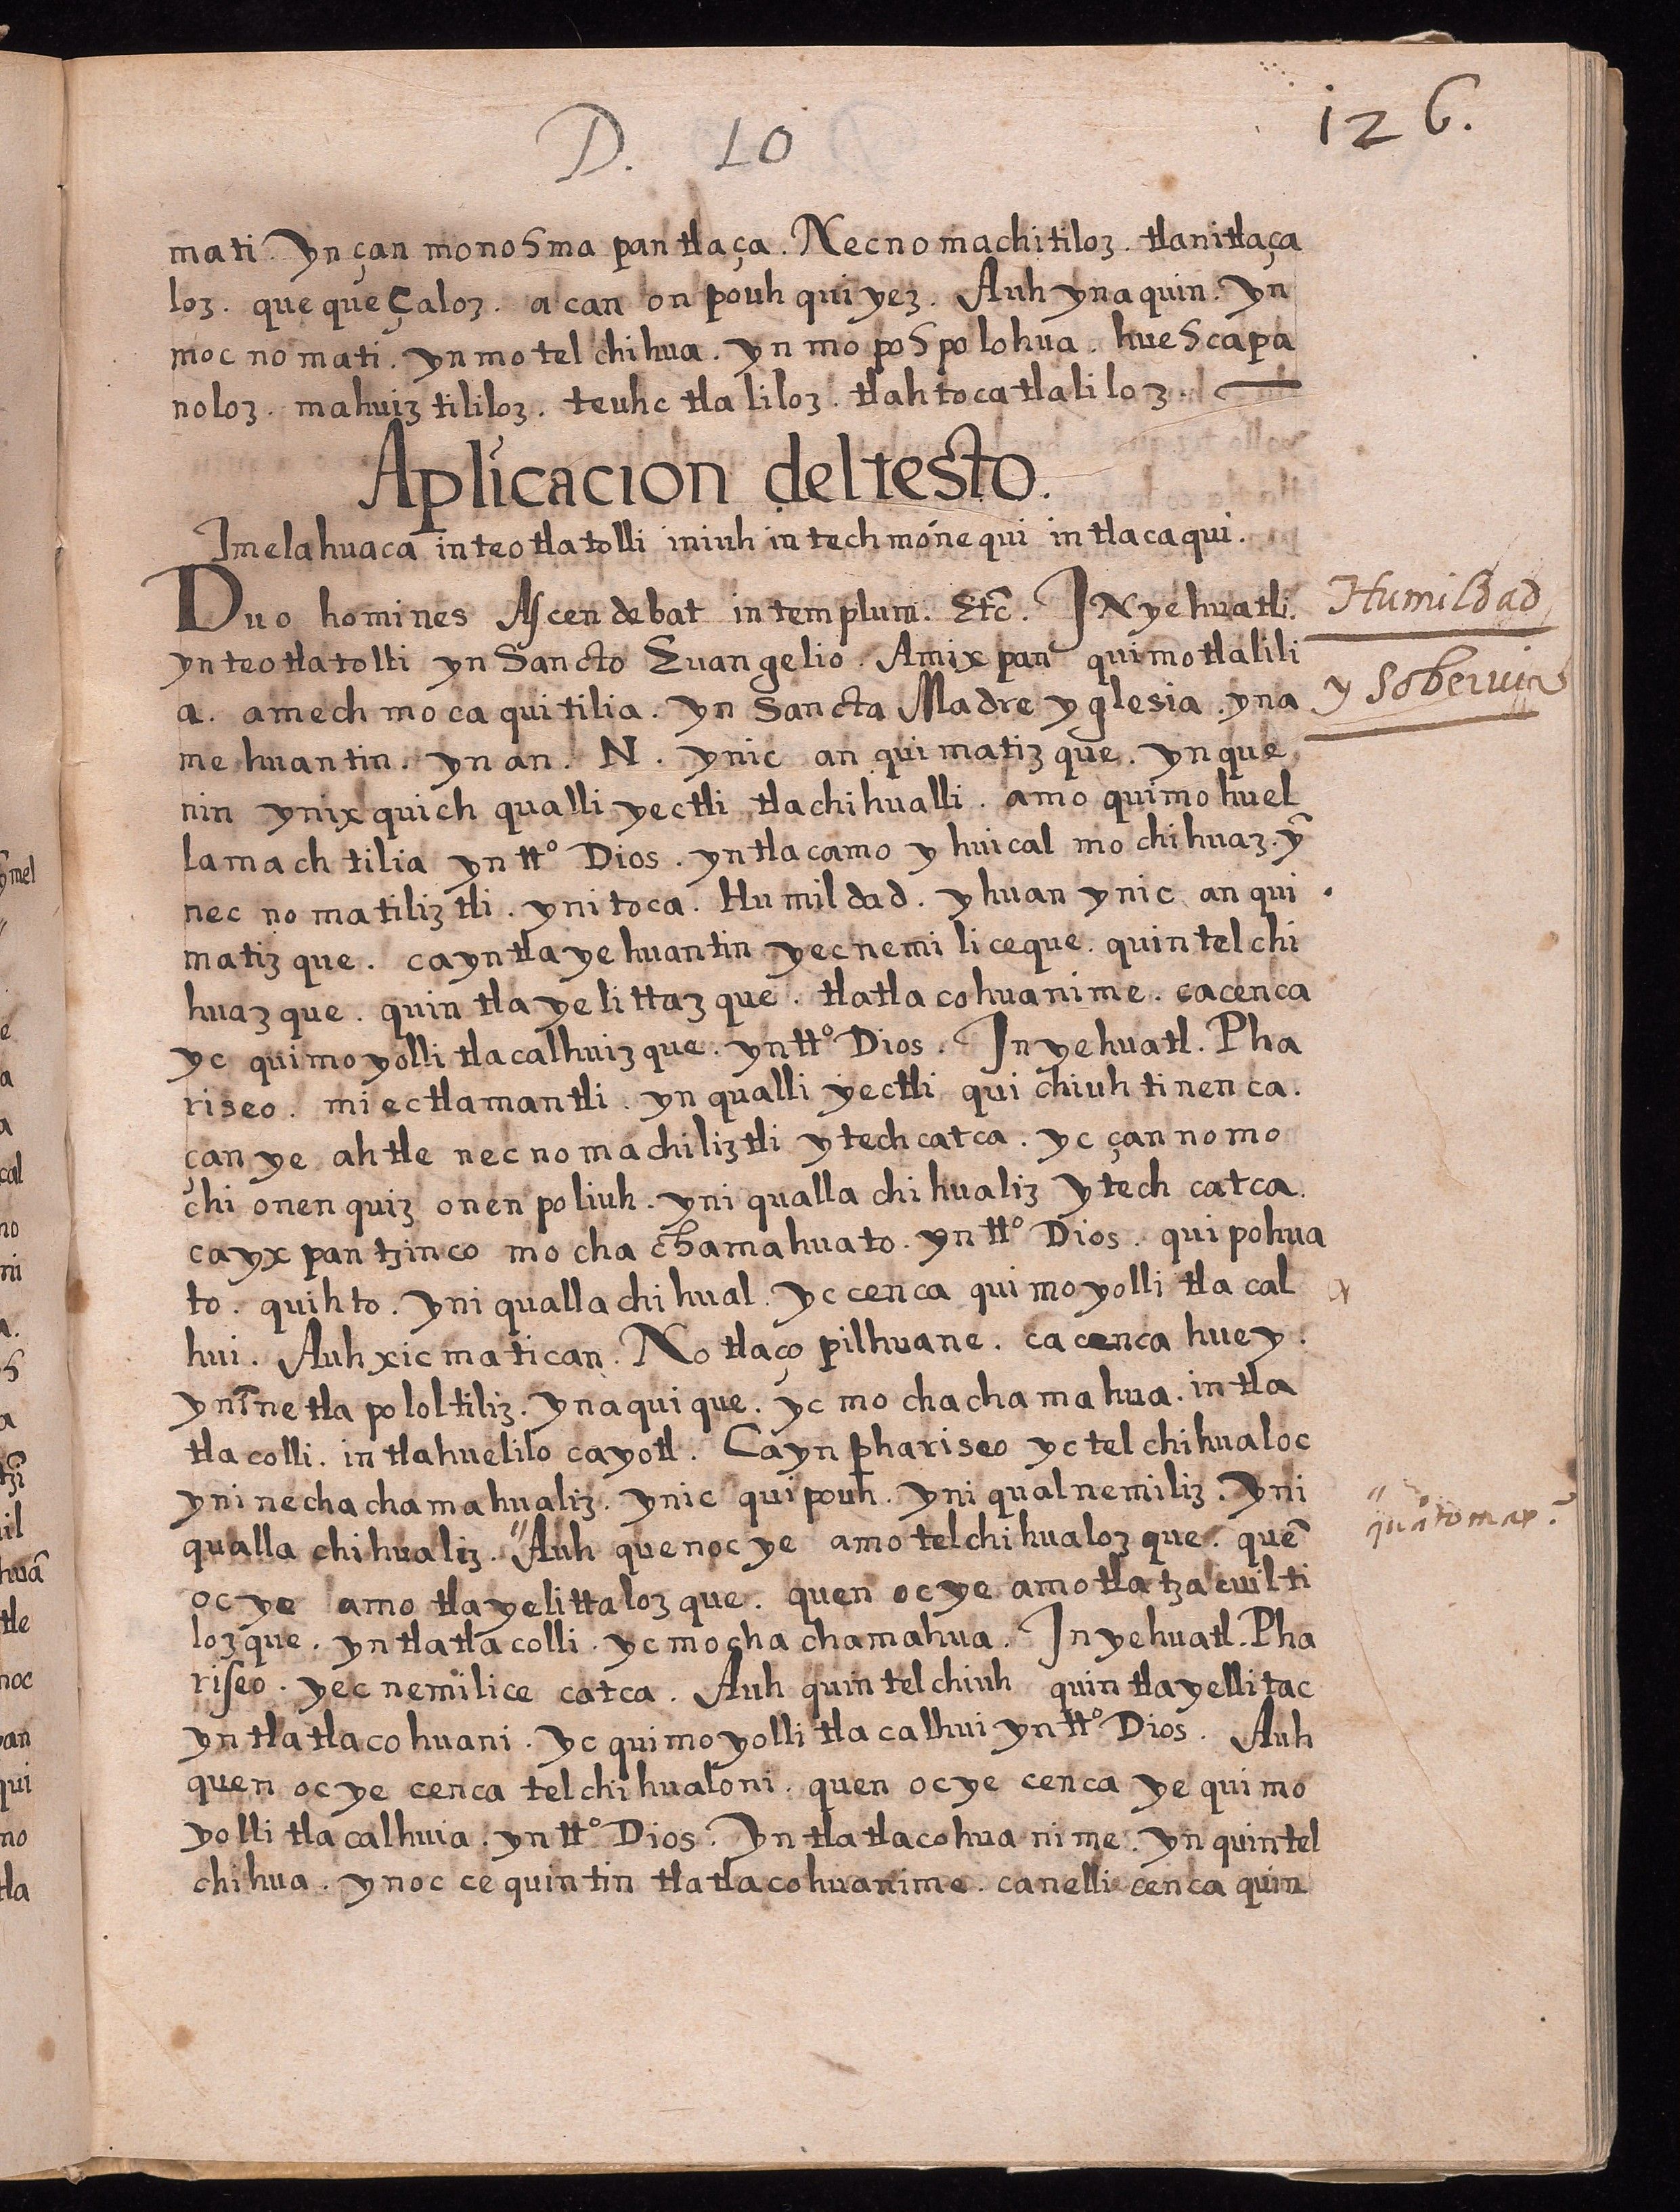 D. 10
126.
mati. Yn çan monohma pantlaça. Necnomachitiloz. tlanitlaça
loz. quequeçaloz. acan onpouhqui yez. Auh ynaquin. Yn
mocnomati. ynmotelchihua. yn mopohpolohua. huehcapa
noloz. mahuiztililoz. teuhctlaliloz. tlahtocatlaliloz.
Aplicacion del testo.
Jmelahuaca inteotlatolli iniuh intech mónequi intlacaqui.
Duo homines Ascendebat in templum. Etc̃. JN yehuatli.
ynteotlatolli yn Sancto Euangelio. Amixpan quimotlalili
a. amechmocaquitilia. yn Sancta Madre yglesia. yna
mehuantin. ynan. N. ynic anquimatizque. ynque
nin ynixquich qualli yectli tlachihualli. amo quimohuel
lamachtilia yn tt.º Dios. yntlacamo yhuical mochihuaz. ỹ
necnomatiliztli. ynitoca. Humildad. yhuan ynic anqui
matizque. cayntla yehuantin yecnemiliceque. quintelchi
huazque. quintlayelittazque. tlatlacohuanime. cacenca
yc quimoyollitlacalhuizque. yn tt.º Dios. Jn yehuatl. Pha
riseo. miectlamantli. yn qualli yectli quichiuhtinenca.
çan ye ahtle necnomachiliztli ytech catca. yc çan nomo
chi onenquiz onenpoliuh. yni quallachihualiz ytech catca.
cayxpantzinco mochachamahuato. yn tt.º Dios. quipohua
to. quihto. yni quallachihual. yc cenca quimoyollitlacal
hui. Auh xicmatican. Notlaçopilhuane. cacenca huey.
ynĩnetlapololtiliz. ynaquique. yc mochachamahua. intla
tlacolli. intlahuelilocayotl. Cayn phariseo yc telchihualoc
yni nechachamahualiz. ynic quipouh. yni qualnemiliz. Yni
quallachihualiz. "Auh quenoc ye amo telchihualozque. quẽ
oc ye amo tlayelittalozque. quen oc ye amo tlatzacuilti
lozque. yntlatlacolli. yc mochachamahua. Jn yehuatl. Pha
riseo. yecnemilice catca. Auh quintelchiuh quintlayellitac
yntlatlacohuani. yc quimoyollitlacalhui yn tt.º Dios. Auh
quen oc ye cenca telchihualoni. quen oc ye cenca ye quimo
yollitlacalhuia. yn tt.º Dios. Yntlatlacohuanime. yn quintel
chihua. ynoc cequintin tlatlacohuanime. canelli cenca quin
Humildad
y Soberuia